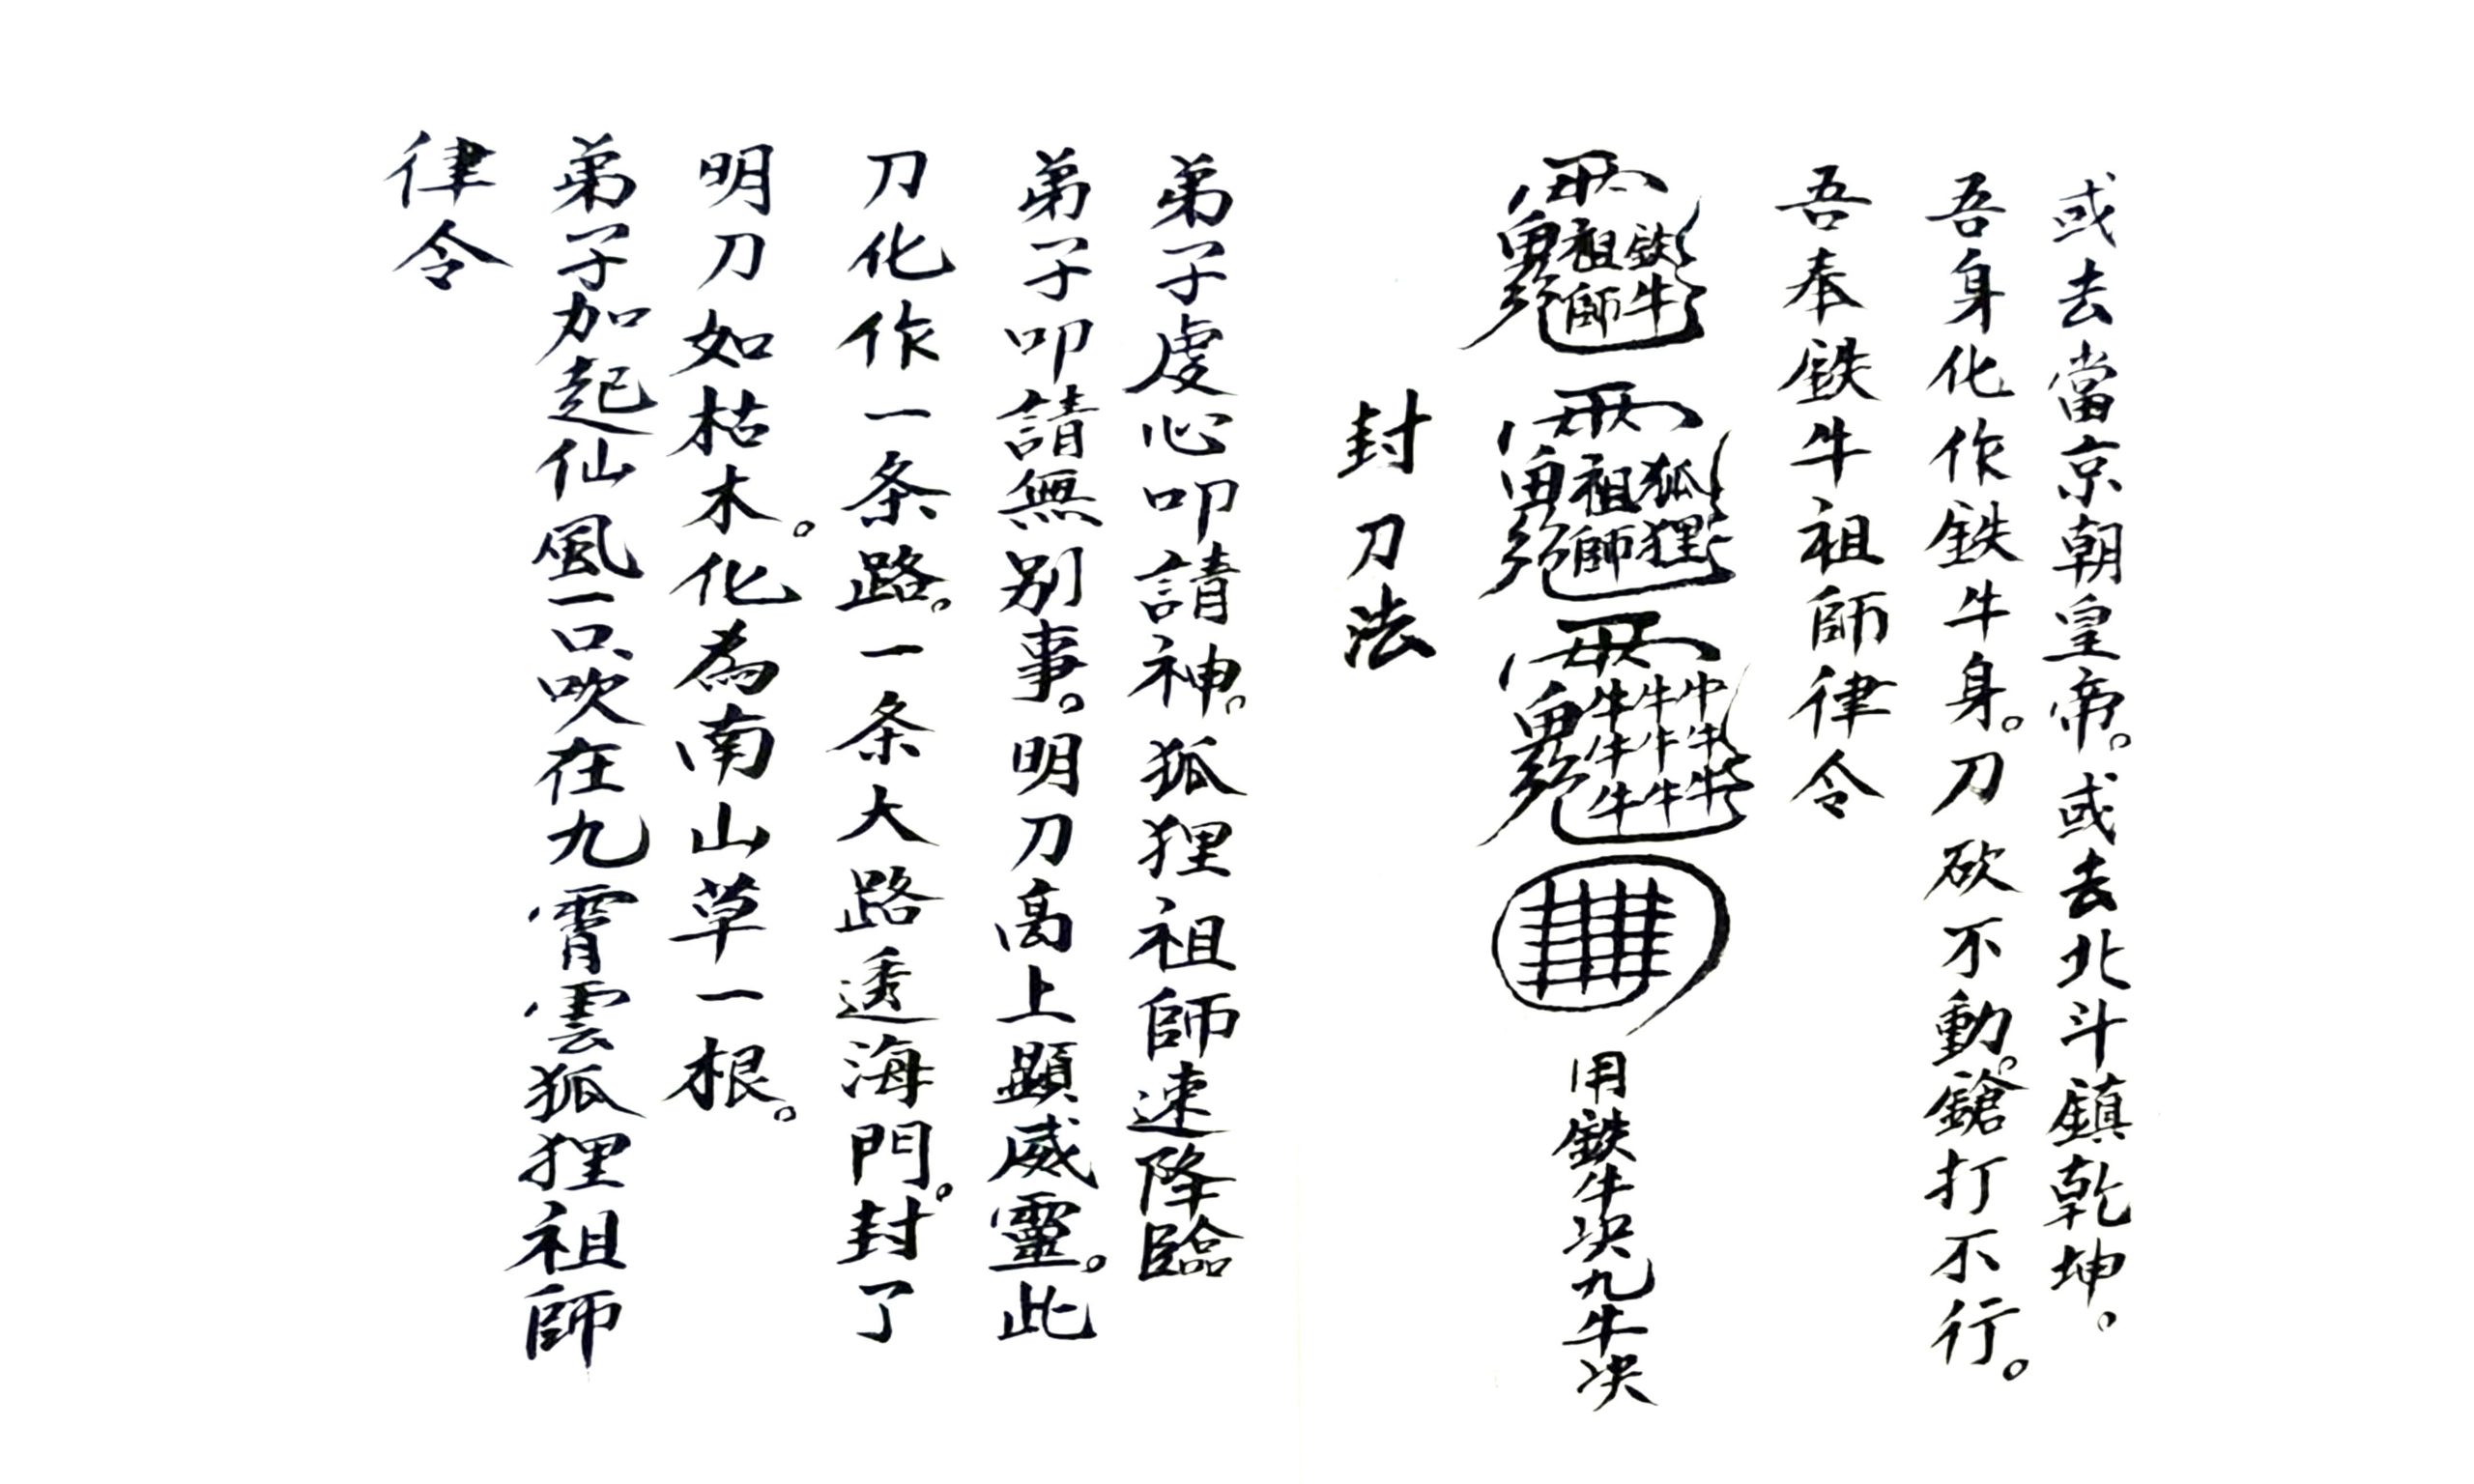 或去當京朝皇帝。或去北斗鎮乾坤。
吾身化作鉄牛身。刀砍不動。鎗打不行。
吾奉鉄牛祖師律令
鉄牛祖師
狐狸祖師
牛牛牛牛牛牛牛牛牛
用鉄牛决九牛决
封刀法
弟子虔心叩請神。狐狸祖師速降臨
弟子叩請無别事。明刀高上顕威靈。此
刀化作一条路。一条大路透海門。封了
明刀如枯木。化為南山草一根。
弟子加起仙風一口吹在九霄雲狐狸祖師
律令